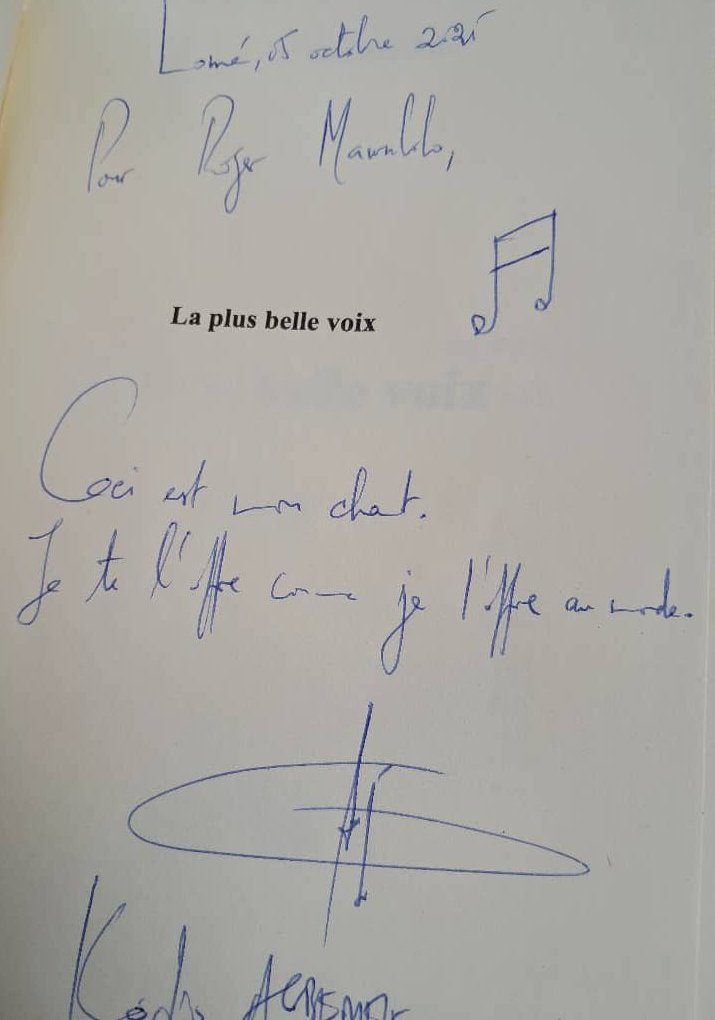 Lomé, 05 octobre 2025
Pour Roger Mawuklo,
La plus belle voix
Ceci est mon chant.
Je te l'offre comme je l'offre au monde.